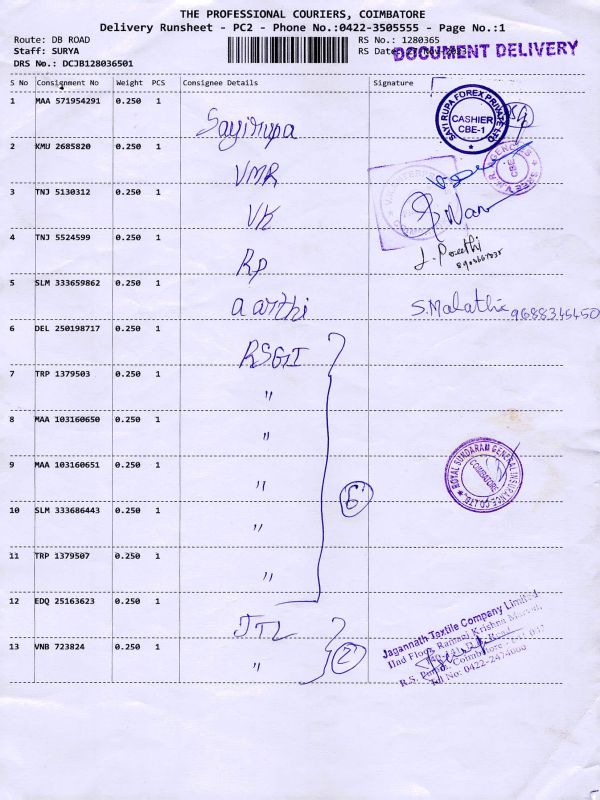 THE PROFESSIONAL COURIERS, COIMBATORE
Delivery Runsheet - PC2 - Phone No.:0422-3505555 - Page No.:1
Route: DB ROAD RS No.: 1280365
Staff: SURYA RS Date:
DOCUMENT DELIVERY
DRS No.: DCJB128036501
S No Consignment No Weight PCS Consignee Details Signature
1 MAA 571954291 0.250 1 Sayirupa
SAYI RUPA FOREX PRIVATE LTD
CASHIER
CBE-1
2 KMU 2685820 0.250 1 VMR
V.M.R. AGENCIES
CBE
3 TNJ 5130312 0.250 1 VK
4 TNJ 5524599 0.250 1 RP J. Preethi
5 SLM 333659862 0.250 1 aarthi S. Malathi 9688346450
6 DEL 250198717 0.250 1 RSGI
7 TRP 1379503 0.250 1 "
8 MAA 103160650 0.250 1 "
9 MAA 103160651 0.250 1 " 6
ROYAL SUNDARAM GENERAL INSURANCE CO LTD.
COIMBATORE
10 SLM 333686443 0.250 1 "
11 TRP 1379507 0.250 1 "
12 EDQ 25163623 0.250 1 JTL
13 VNB 723824 0.250 1 " 2
Jagannath Textile Company Limited
IInd Floor, Ramani Krishna
R.S. Puram, Coimbatore
Tel No: 0422-2474000